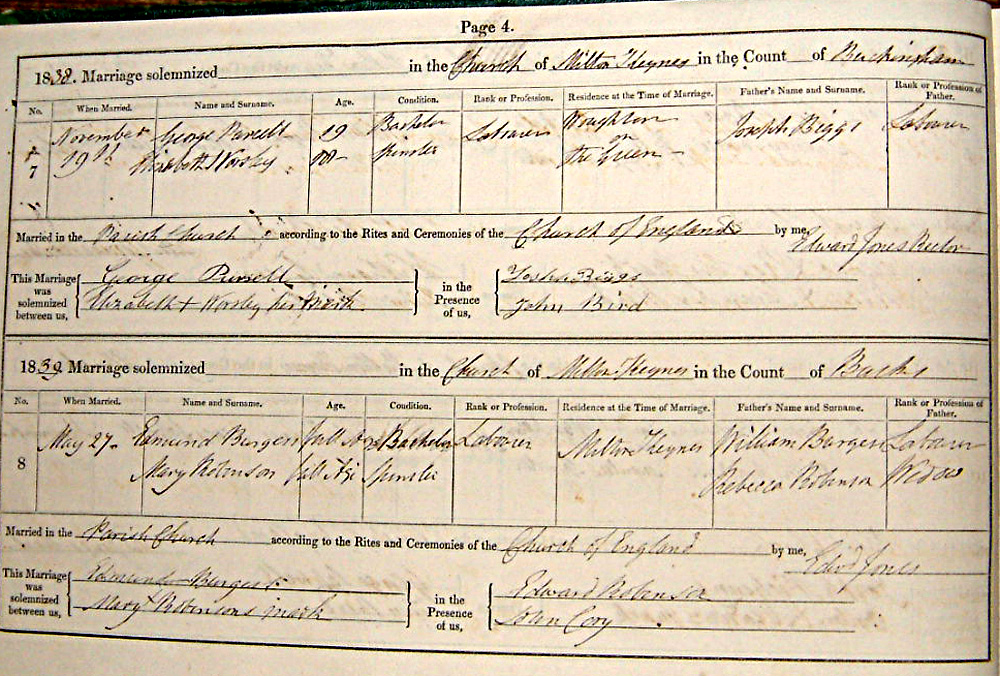 Page 4.
1838. Marriage solemnized in the Church of Milton Keynes in the Count of Buckingham
No. When Married. Name and Surname. Age. Condition. Rank or Profession. Residence at the Time of Marriage. Father's Name and Surname. Rank or Profession of Father.
November George Pursell 19 Bachelor Labourer Woughton Joseph Biggs Labourer
7 19th Elizabeth Worsley Spinster on the Green
Married in the Parish Church according to the Rites and Ceremonies of the Church of England by me, Edward Jones Rector
This Marriage was solemnized between us, George Pursell in the Presence of us, Joshu Biggs
Elizabeth + Worsley her mark John Bird
1839. Marriage solemnized in the Church of Milton Keynes in the Count of Bucks
No. When Married. Name and Surname. Age. Condition. Rank or Profession. Residence at the Time of Marriage. Father's Name and Surname. Rank or Profession of Father.
8 May 27 Edmund Burgess full Age Bachelor Labourer Milton Keynes William Burgess Labourer
Mary Robinson full Age Spinster Rebecca Robinson Widow
Married in the Parish Church according to the Rites and Ceremonies of the Church of England by me, Edwd Jones
This Marriage was solemnized between us, Edmund Burgess in the Presence of us, Edward Robinson
Mary + Robinsons mark John Cory